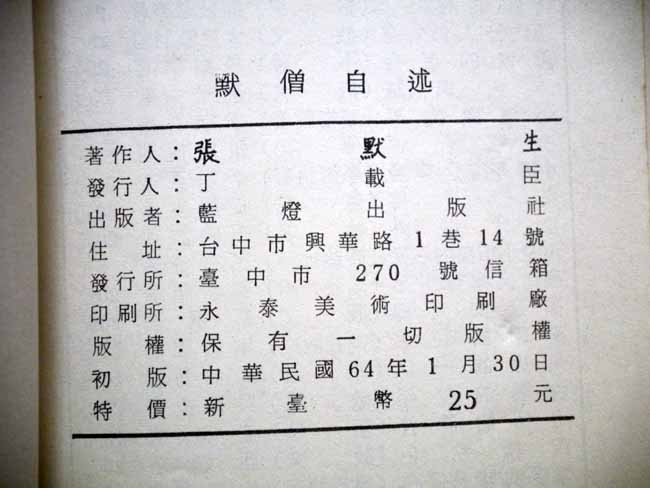 默僧自述
著作人：張默生
發行人：丁載臣
出版者：藍燈出版社
住址：台中市興華路1巷14號
發行所：臺中市270號信箱
印刷所：永泰美術印刷廠
版權：保有一切版權
初版：中華民國64年1月30日
特價：新臺幣25元